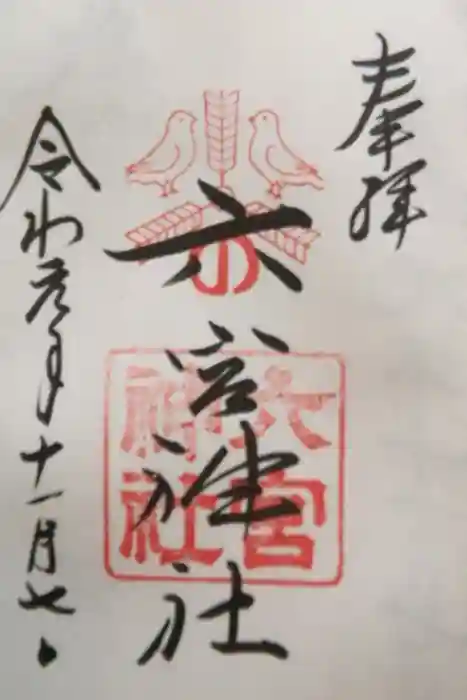 奉拝
六宮神社
令和元年十一月七日
六宮
神社